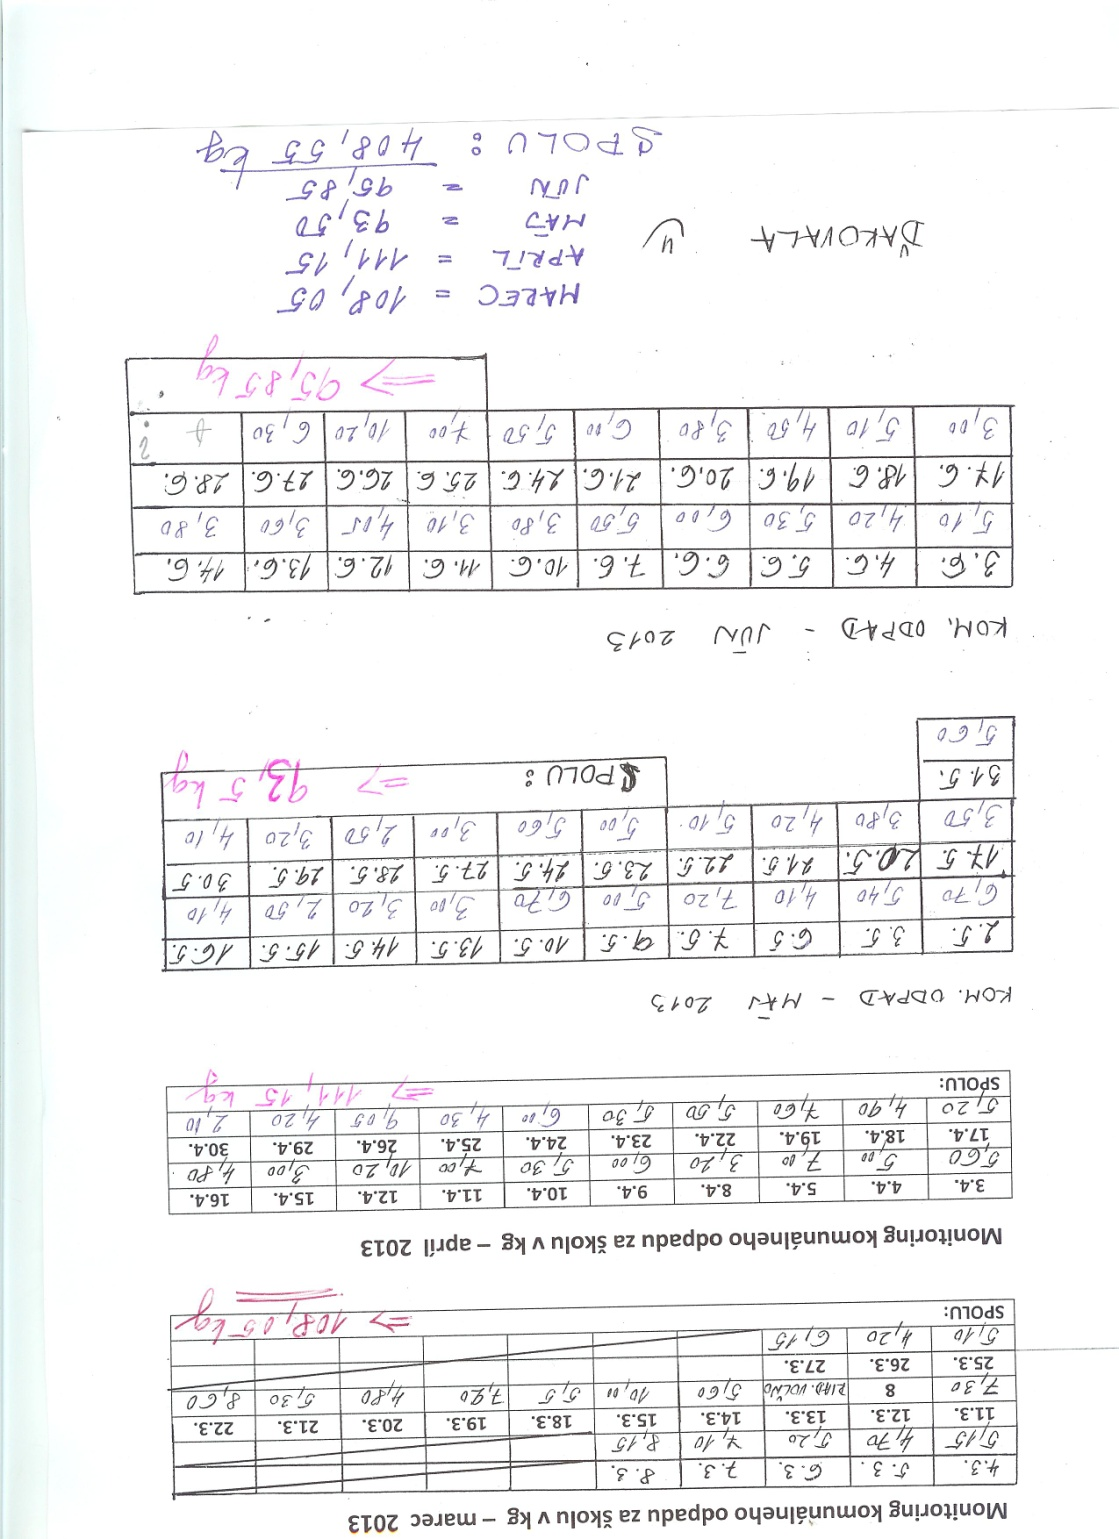 Monitoring komunálneho odpadu za školu v kg – marec 2013
4.3. 5.3. 6.3. 7.3. 8.3.
5,15 4,70 5,20 7,10 8,15
11.3. 12.3. 13.3. 14.3. 15.3. 18.3. 19.3. 20.3. 21.3. 22.3.
7,30 8 RIAD. VOĽNO 5,60 10,00 5,5 7,20 4,80 5,30 8,60
25.3. 26.3. 27.3.
5,10 4,20 6,15
SPOLU: => 108,05 kg
Monitoring komunálneho odpadu za školu v kg – apríl 2013
3.4. 4.4. 5.4. 8.4. 9.4. 10.4. 11.4. 12.4. 15.4. 16.4.
5,60 5,00 7,00 3,20 6,00 5,30 7,00 10,20 3,00 4,80
17.4. 18.4. 19.4. 22.4. 23.4. 24.4. 25.4. 26.4. 29.4. 30.4.
5,20 4,90 7,60 5,50 5,30 6,00 4,30 9,05 4,20 2,10
SPOLU: => 111,15 kg
KOM. ODPAD - MÁJ 2013
2.5. 3.5. 6.5 7.5. 9.5. 10.5. 13.5. 14.5. 15.5. 16.5.
6,70 5,40 4,10 7,20 5,00 6,70 3,00 3,20 2,50 4,10
17.5. 20.5. 21.5. 22.5. 23.5. 24.5. 27.5. 28.5. 29.5. 30.5
3,50 3,80 4,20 5,10 5,00 5,60 3,00 2,50 3,20 4,10
31.5. SPOLU: => 93,5 kg
5,60
KOM. ODPAD - JÚN 2013
3.6. 4.6. 5.6. 6.6. 7.6. 10.6. 11.6. 12.6. 13.6. 14.6.
5,10 4,20 5,30 6,00 5,50 3,80 3,10 4,05 3,60 3,80
17.6. 18.6 19.6. 20.6. 21.6. 24.6. 25.6 26.6. 27.6. 28.6.
3,00 5,10 4,50 3,80 6,00 5,50 7,00 10,20 6,30
=> 95,85 kg
MAREC = 108,05
APRÍL = 111,15
MÁJ = 93,50
JÚN = 95,85
SPOLU: 408,55 kg
ĎAKOVALA